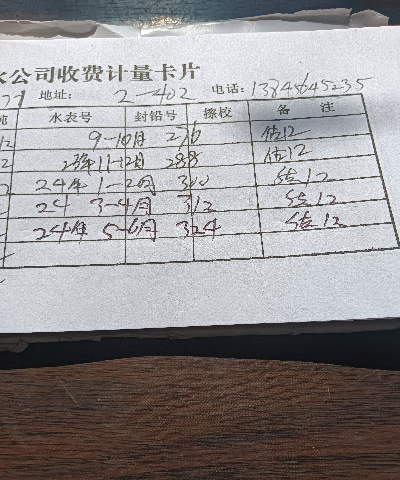 水公司收费计量卡片
地址: 2-402 电话: 13845645235
吨 水表号 封铅号 擦校 备注
12 9-10月 276 估12
2 23年11-12月 288 估12
2 24年1-2月 300 估12
24 3-4月 312 估12
24年5-6月 324 估12